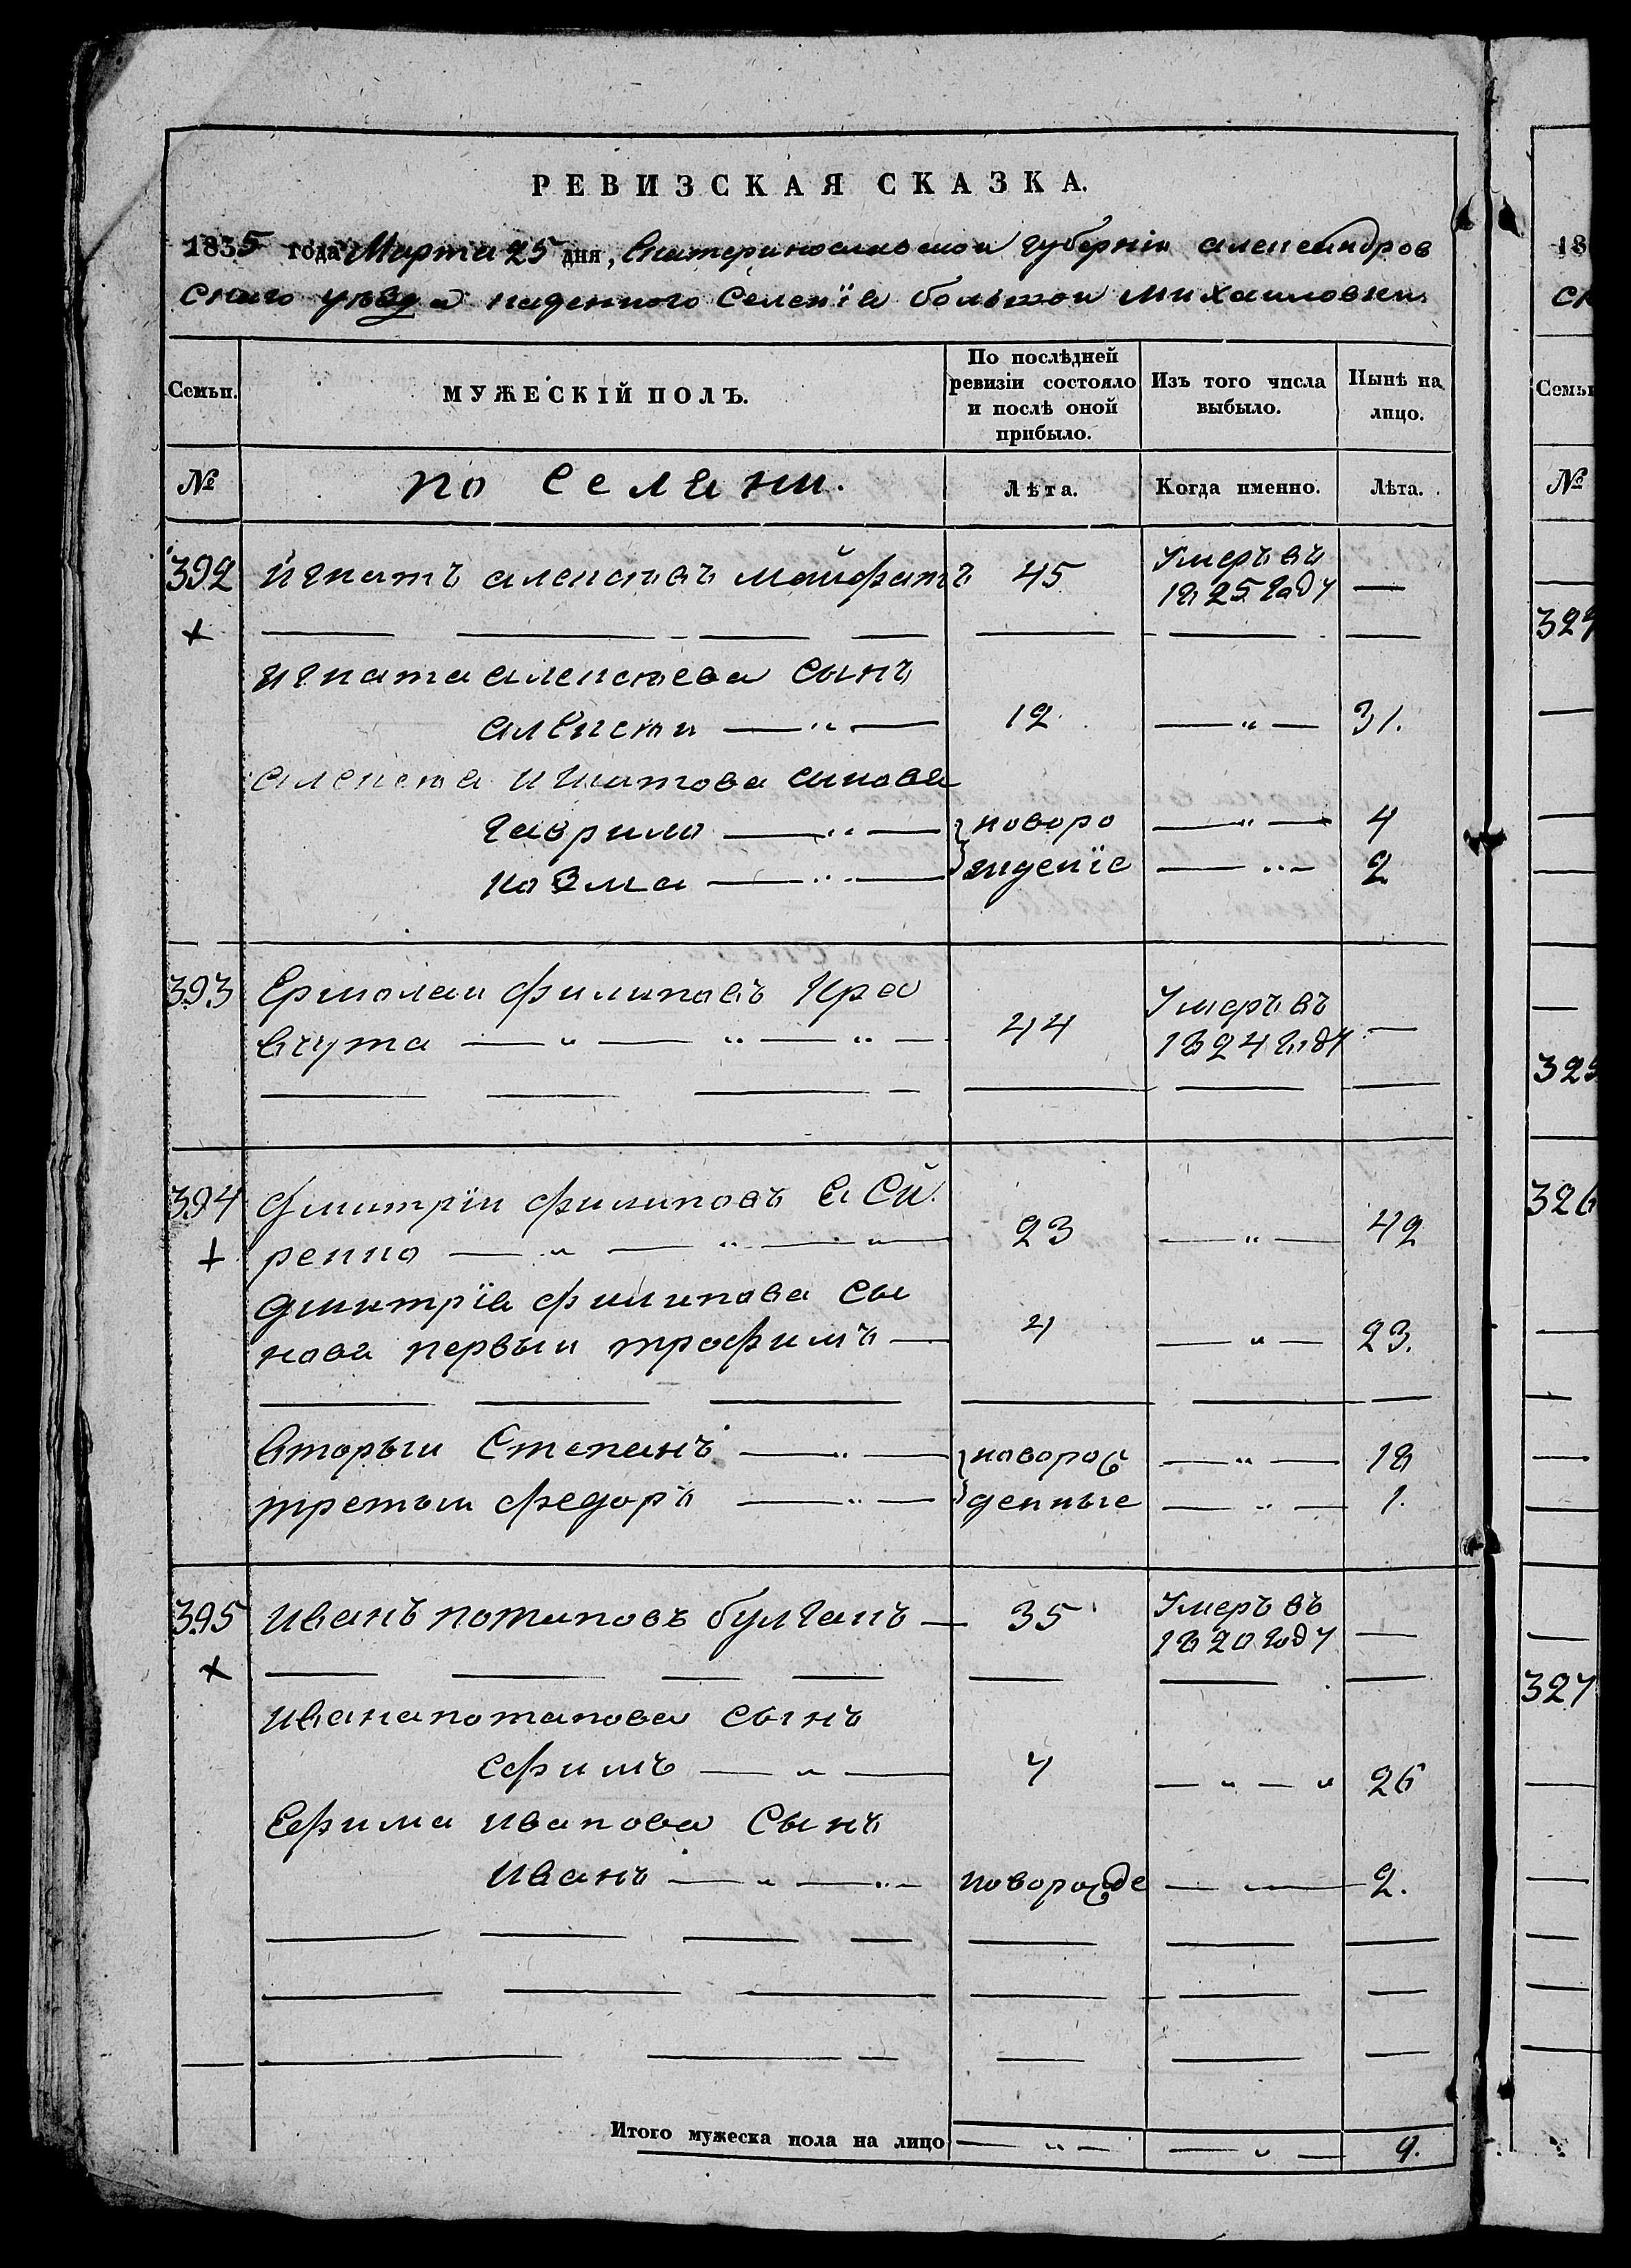 РЕВИЗСКАЯ СКАЗКА.
1835 года Марта 25 дня, Екатеринославской губерніи александров
скаго уѣзда казенного селенїя большой михаиловки
Семьи. МУЖЕСКІЙ ПОЛЪ. По послѣдней ревизіи состояло и послѣ оной прибыло. Изъ того числа выбыло. Нынѣ на лицо.
№ поселяни. Лѣта. Когда именно. Лѣта.
392 игнатъ алексѣевъ 45 Умеръ въ 1825 году —
игната алексѣева сынъ
алексѣи — 12 — 31.
алексѣя игнатова синовя
гаврило — новоро — 4
козма — жденїе — 2
393 Ермолаи филиповъ Кра
вчута — 44 Умеръ въ 1824 году —
394 дмитрїи филиповъ
23 — 42
дмитрїя филипова сы
новя первыи трофимъ — 4 — 23.
вторыи Степанъ — новорож — 18
третыи федоръ — денные — 1.
395 иванъ потаповъ булганъ — 35 Умеръ въ 1820 году —
ивана потапова сынъ
ефимъ — 7 — 26
Ефима иванова Сынъ
иванъ — новорожде — 2.
Итого мужеска пола на лицо — — 9.
18
ск
Семьи
№
324
325
326
327